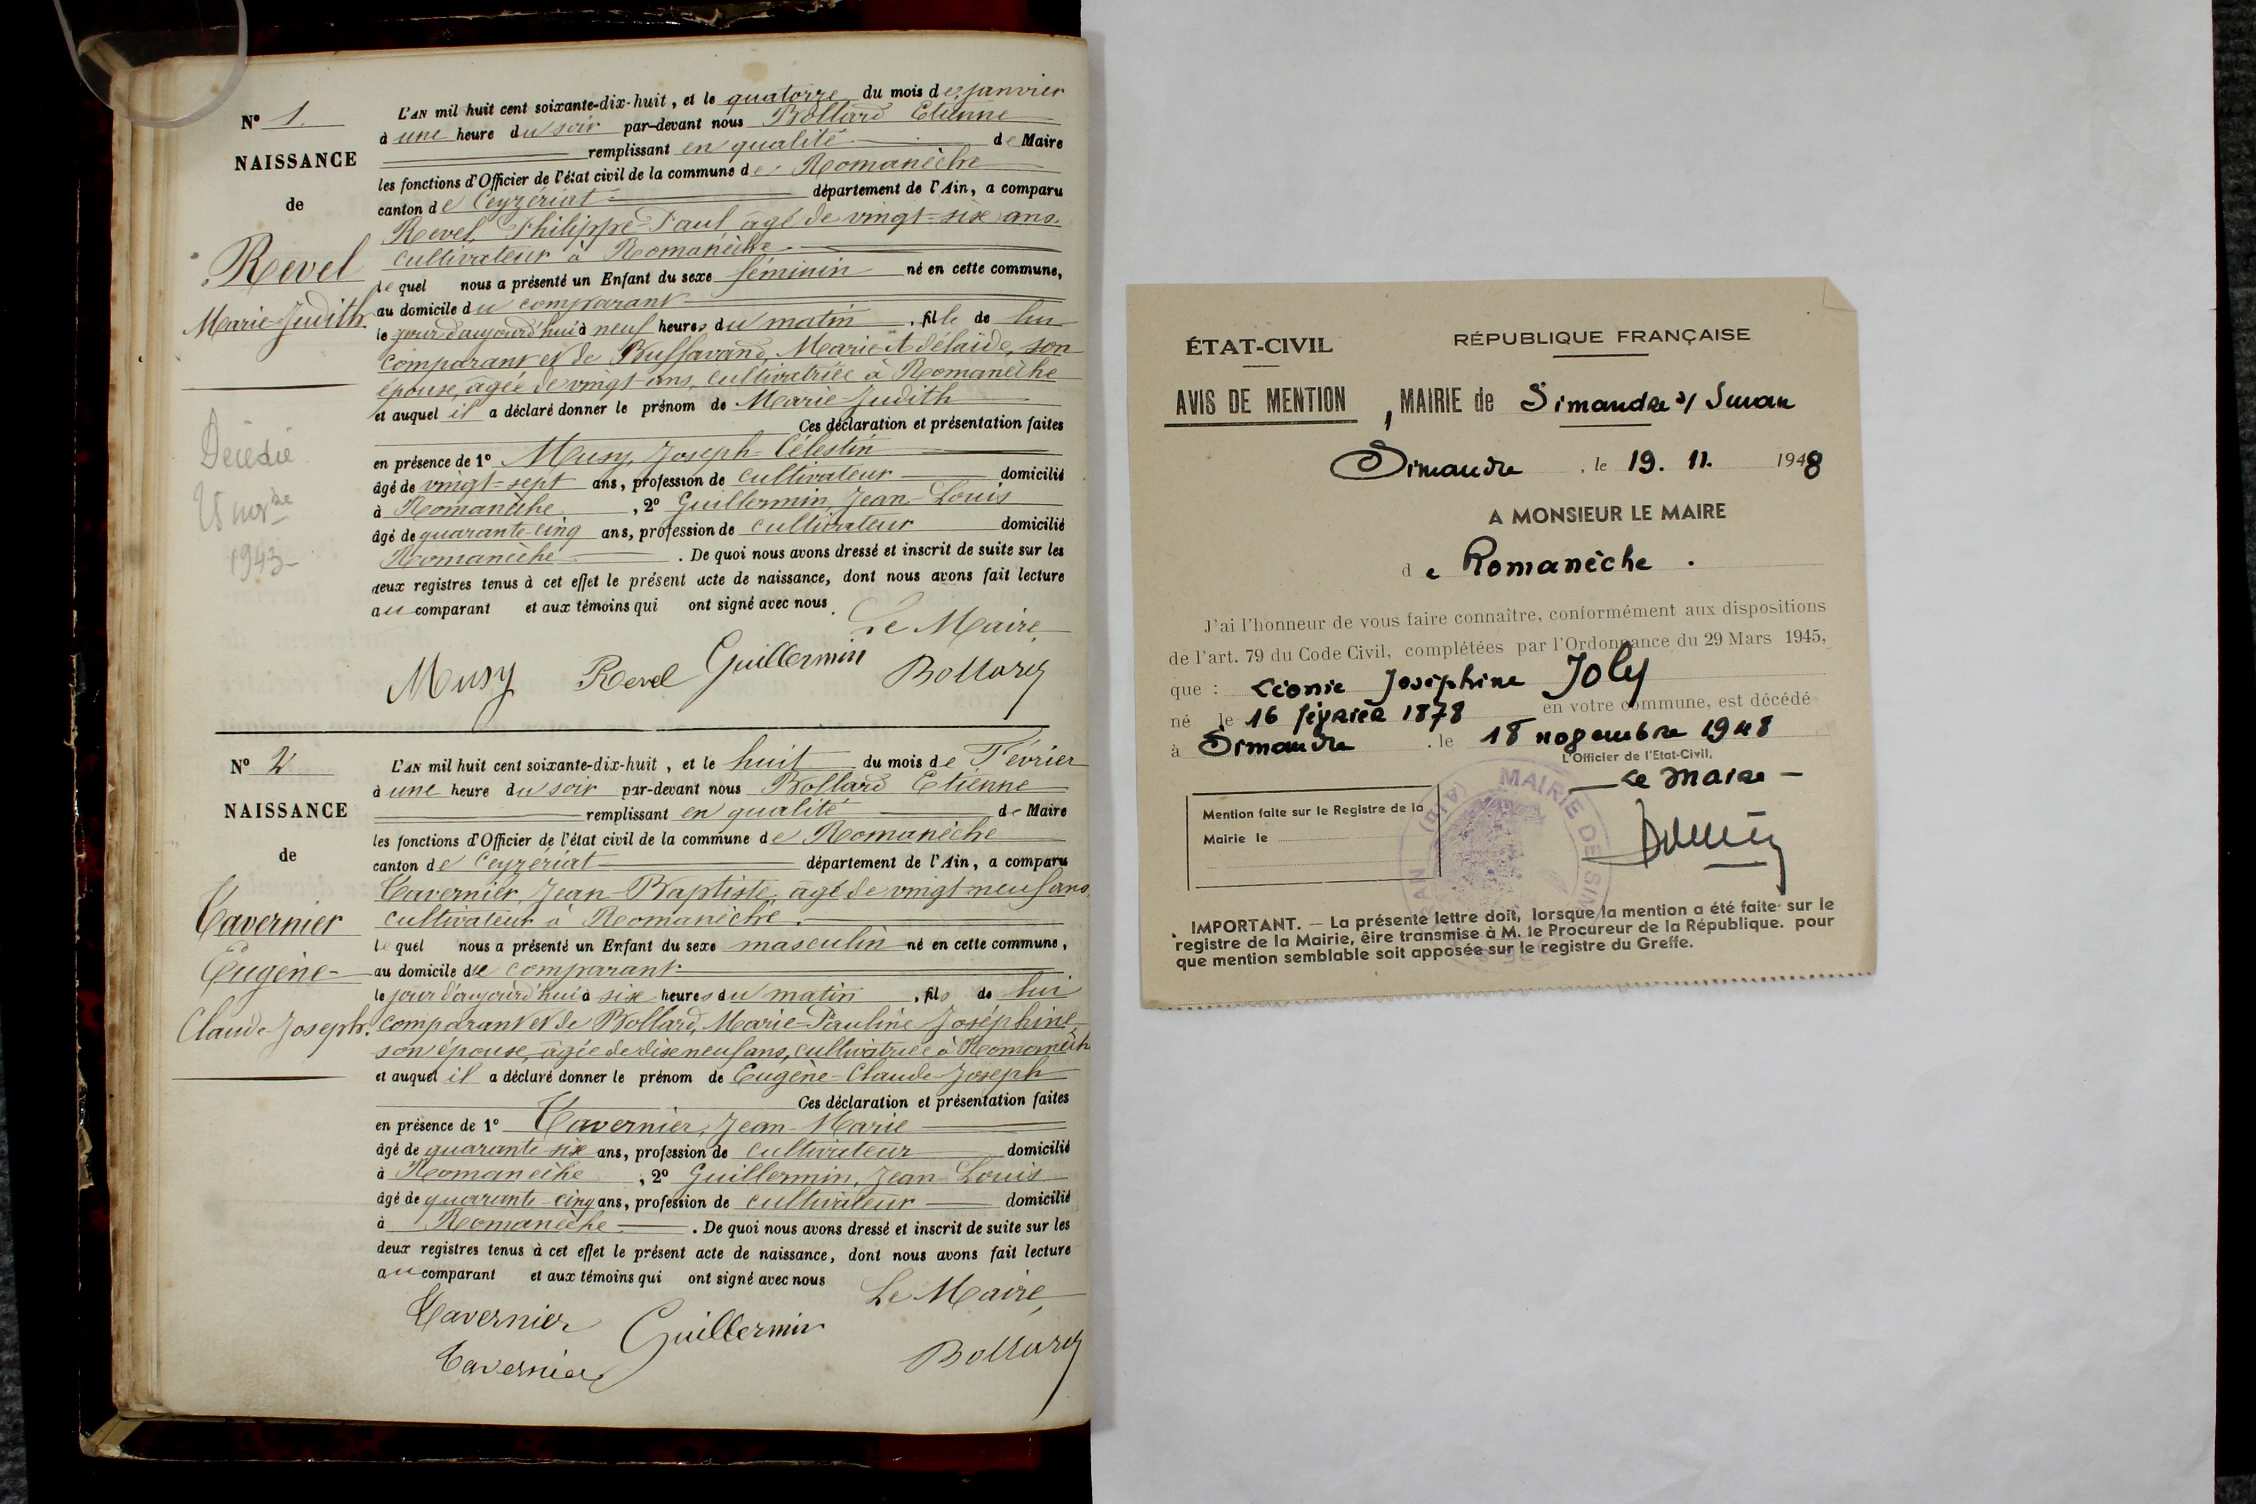 N° 1.
NAISSANCE
de
Revel
Marie-Judith.
Décédée
1943-
L'AN mil huit cent soixante-dix-huit, et le quatorze du mois de Janvier
à une heure du soir par-devant nous Bollard Etienne
remplissant en qualité de Maire
les fonctions d'Officier de l'état civil de la commune de Romanèche
canton de Ceyzériat département de l'Ain, a comparu
Revel, Philippe-Paul, âgé de vingt-six ans.
cultivateur à Romanèche
lequel nous a présenté un Enfant du sexe féminin né en cette commune,
au domicile du comparant
le jour d'aujourd'hui à neuf heures du matin, fille de lui
comparant et de Buffavand, Marie Adélaïde, son
épouse, âgée de vingt ans, cultivatrice à Romanèche
et auquel il a déclaré donner le prénom de Marie Judith
Ces déclaration et présentation faites
en présence de 1° Musy, Joseph-Célestin
âgé de vingt-sept ans, profession de cultivateur domicilié
à Romanèche, 2° Guillermin, Jean-Louis
âgé de quarante-cinq ans, profession de cultivateur domicilié
Romanèche. De quoi nous avons dressé et inscrit de suite sur les
deux registres tenus à cet effet le présent acte de naissance, dont nous avons fait lecture
au comparant et aux témoins qui ont signé avec nous.
Le Maire,
Musy Revel Guillermin Bollard
N° 2
NAISSANCE
de
Tavernier
Eugène-
Claude-Joseph.
L'AN mil huit cent soixante-dix-huit, et le huit du mois de Février
à une heure du soir par-devant nous Bollard Etienne
remplissant en qualité de Maire
les fonctions d'Officier de l'état civil de la commune de Romanèche
canton de Ceyzériat département de l'Ain, a comparu
Tavernier, Jean-Baptiste, âgé de vingt-neuf ans
cultivateur à Romanèche.
lequel nous a présenté un Enfant du sexe masculin né en cette commune,
au domicile de comparant
le jour d'aujourd'hui à six heures du matin, fils de lui
comparant et de Bollard, Marie-Pauline Joséphine,
son épouse, âgée de dix neuf ans, cultivatrice à Romanèche
et auquel il a déclaré donner le prénom de Eugène-Claude-Joseph
Ces déclaration et présentation faites
en présence de 1° Tavernier, Jean-Marie
âgé de quarante six ans, profession de cultivateur domicilié
à Romanèche, 2° Guillermin, Jean-Louis
âgé de quarante-cinq ans, profession de cultivateur domicilié
à Romanèche. De quoi nous avons dressé et inscrit de suite sur les
deux registres tenus à cet effet le présent acte de naissance, dont nous avons fait lecture
au comparant et aux témoins qui ont signé avec nous
Le Maire,
Tavernier Guillermin
Tavernier Bollard
ÉTAT-CIVIL
AVIS DE MENTION
RÉPUBLIQUE FRANÇAISE
MAIRIE de Simandre s/ Suran
Simandre, le 19. 11. 1948
A MONSIEUR LE MAIRE
de Romanèche.
J'ai l'honneur de vous faire connaître, conformément aux dispositions
de l'art. 79 du Code Civil, complétées par l'Ordonnance du 29 Mars 1945,
que : Léonie Joséphine Joly
né le 16 février 1878 en votre commune, est décédé
à Simandre. le 18 novembre 1948
L'Officier de l'Etat-Civil,
Le Maire -
Mention faite sur le Registre de la
Mairie le
MAIRIE DE SIMANDRE
(AIN)
IMPORTANT. — La présente lettre doit, lorsque la mention a été faite sur le
registre de la Mairie, être transmise à M. le Procureur de la République. pour
que mention semblable soit apposée sur le registre du Greffe.